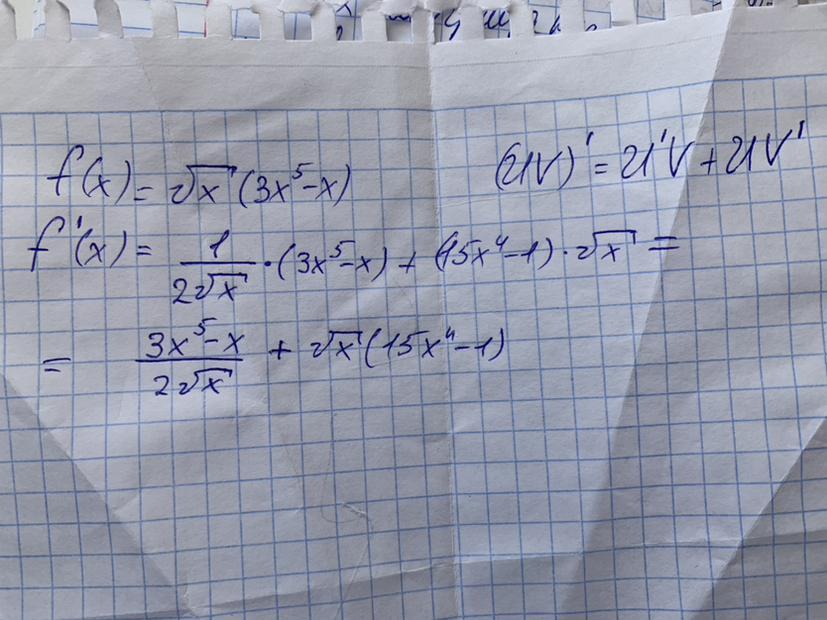 f(x) = √x (3x⁵-x)
(UV)' = U'V + UV'
f'(x) = 1/(2√x) · (3x⁵-x) + (15x⁴-1) · √x =
= (3x⁵-x)/(2√x) + √x (15x⁴-1)